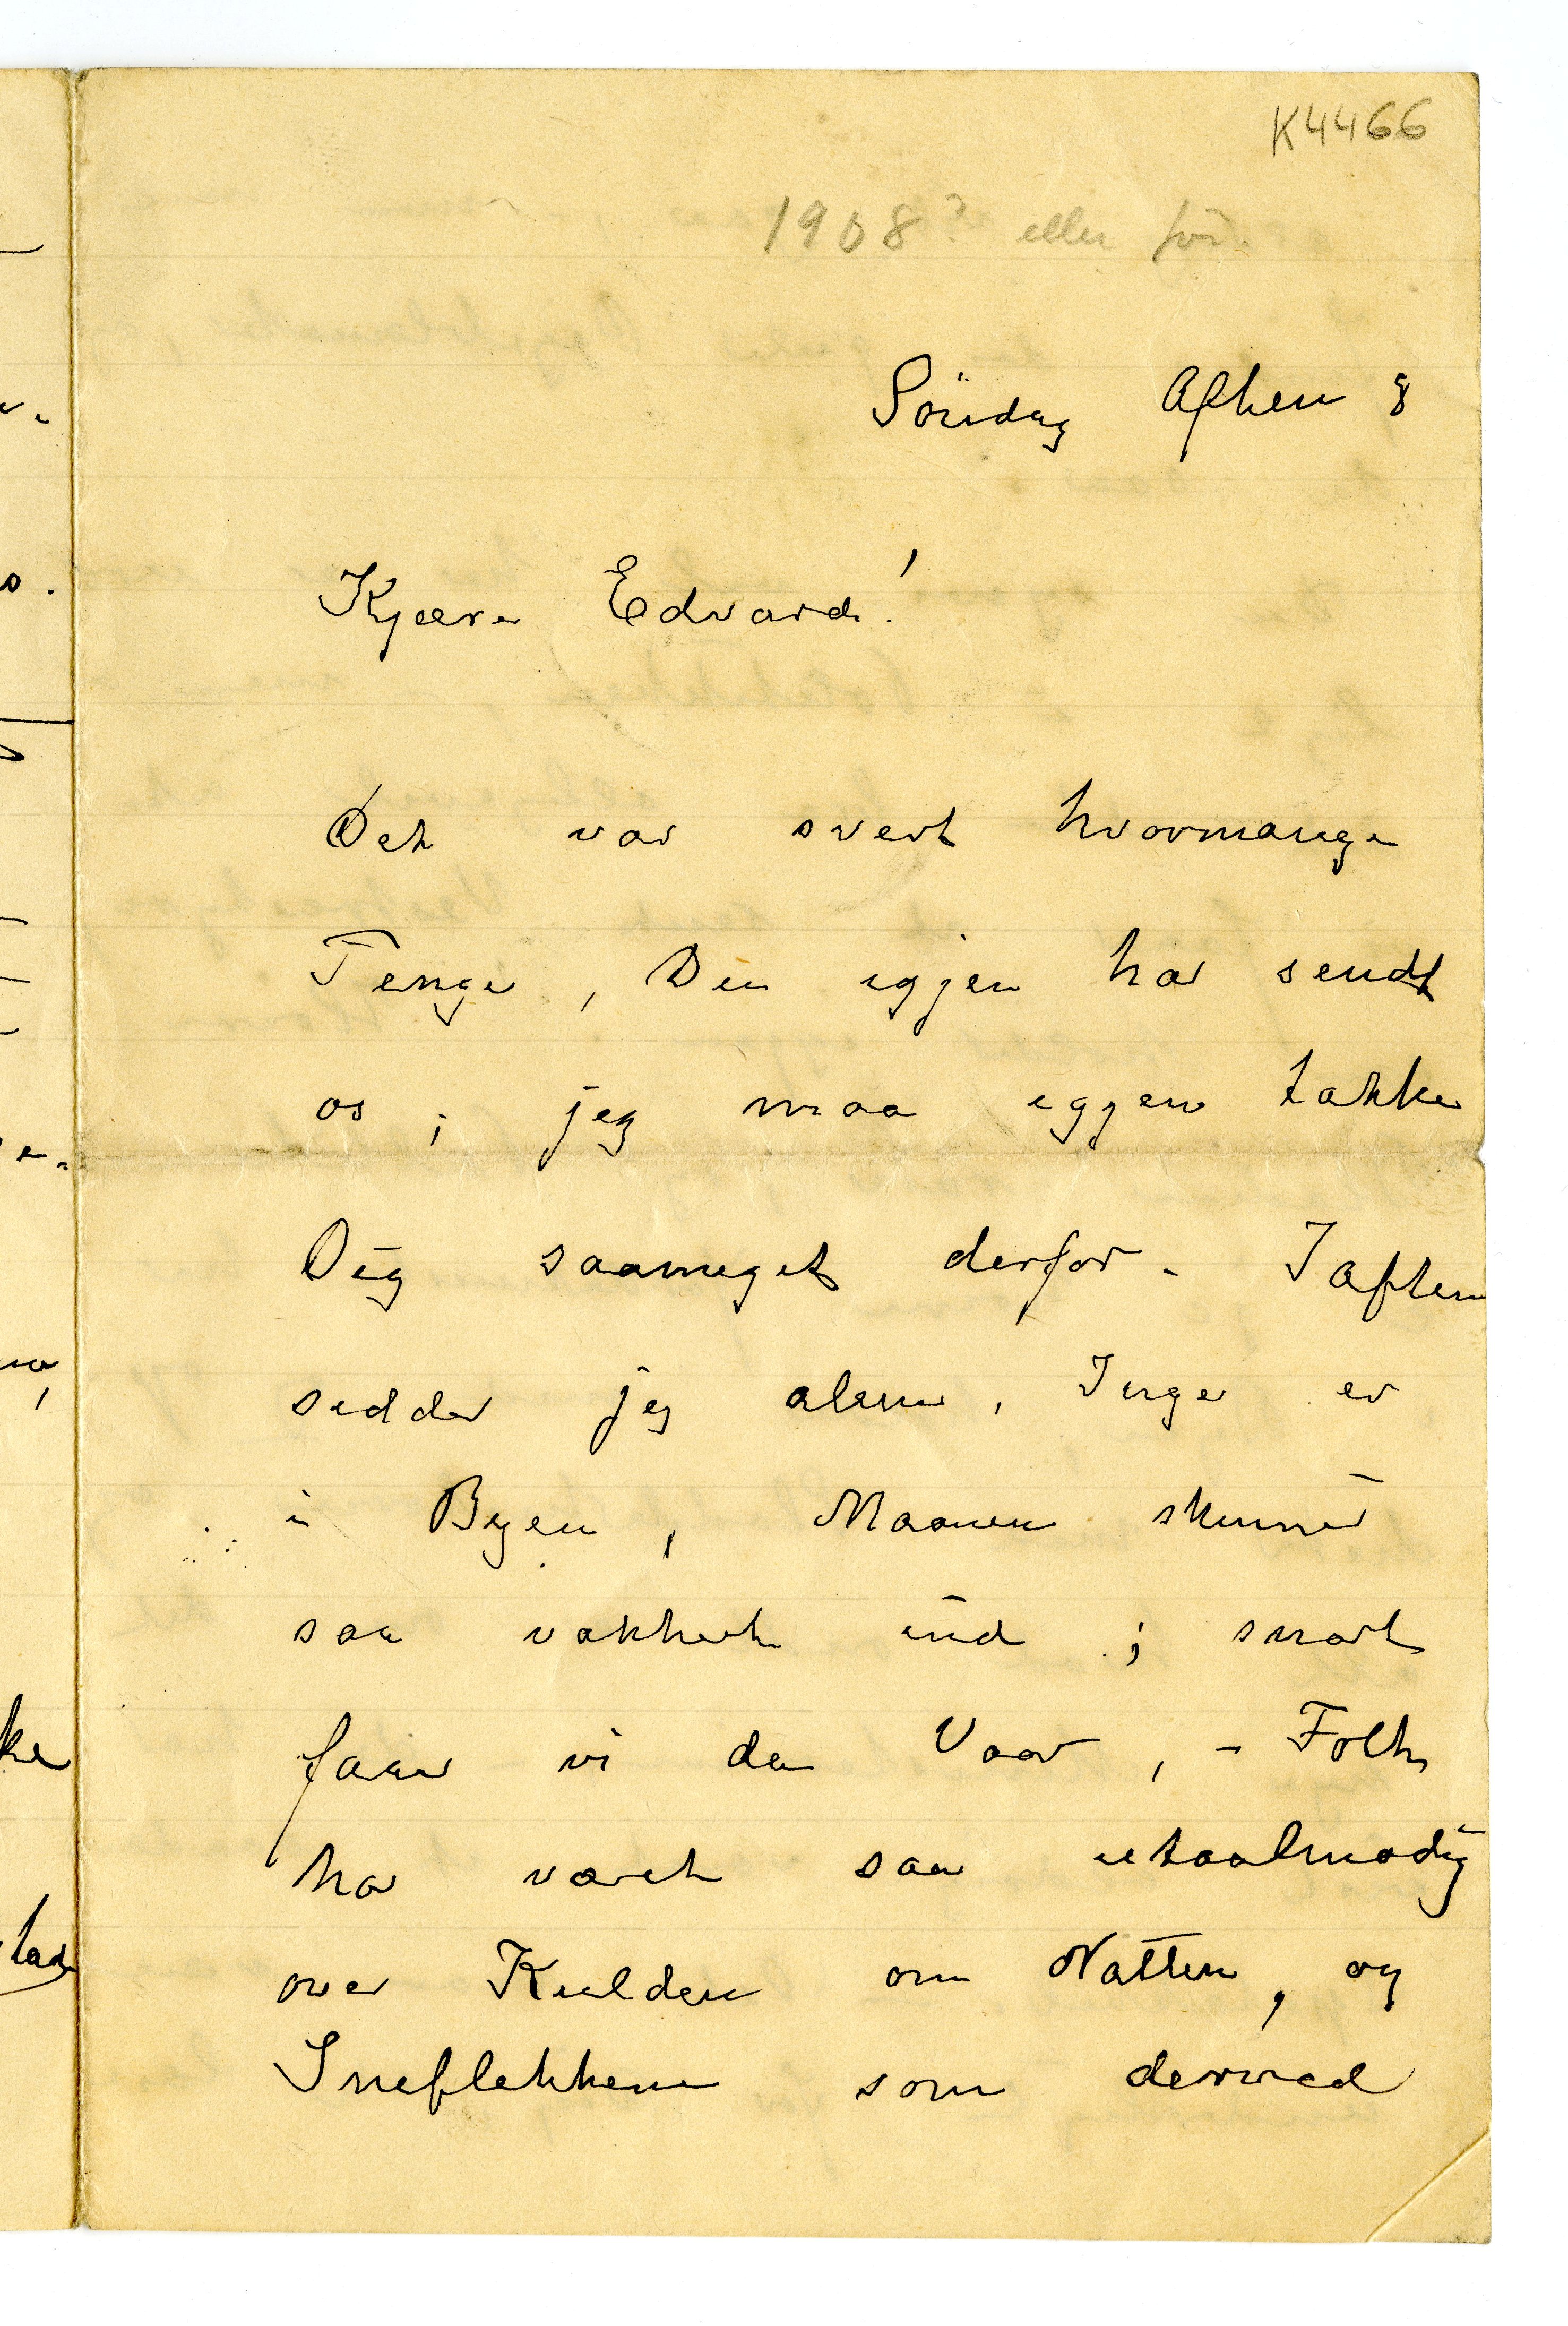 K4466
1908? eller før.
Söndag Aften 8
Kjære Edvard!
Det var svert hvormange
Penge, Du igjen har sendt
os; jeg maa igjen takke
Dig saameget derfor. Iaften
sidder jeg alene, Inger er
i Byen, Maanen skinner
saa vakkert ind; snart
faar vi da Vaar, – Folk
har været saa utaalmodig
over Kulden om Natten, og
Sneflekkene som derved